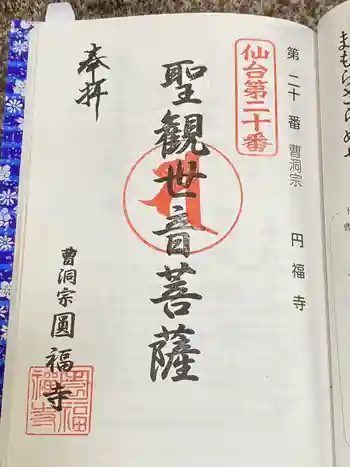 第二十番 曹洞宗 円福寺
仙台第二十番
聖観世音菩薩
奉拝
曹洞宗 圓福寺